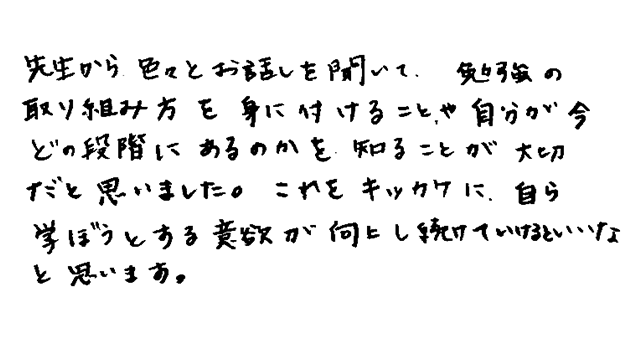 先生から色々とお話しを聞いて、勉強の
取り組み方を身に付けること、や自分が今
どの段階にあるのかを知ることが大切
だと思いました。これをキッカケに、自ら
学ぼうとする意欲が向上し続けていけるといいな
と思います。